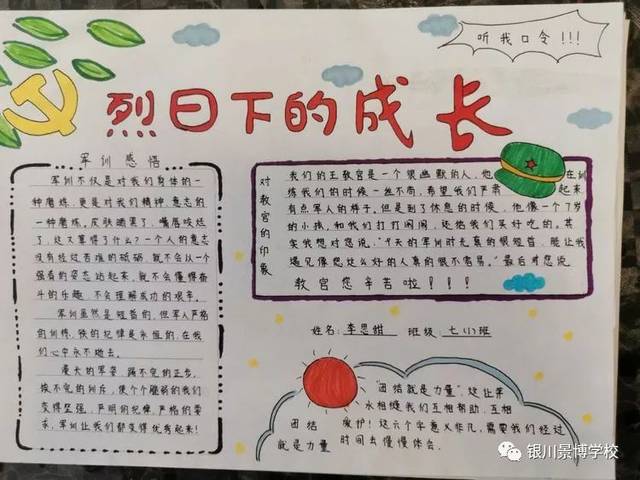 听我口令!!!
烈日下的成长
军训感悟
军训不仅是对我们身体的一
种磨炼,更是对我们精神、意志的
一种磨炼。皮肤晒黑了,嘴唇咬烂
了,这又算得了什么?一个人的意志
没有经过苦难的砥砺,就不会以一个
强者的姿态站起来,就不会懂得奋
斗的乐趣,不会理解成功的艰辛。
军训虽然是短暂的,但军人严格
的训练,铁的纪律是永恒的,在我
们心中永不逝去。
漫长的军姿,踢不完的正步,
挨不完的训斥,使个个脆弱的我们
变得坚强,严明的纪律,严格的要
求,军训让我们都变得优秀起来!
对教官的印象
我们的王教官是一个很幽默的人,他 在训
练我们的时候一丝不苟,希望我们严肃 起来
有点军人的样子。但是到了休息的时候,他像一个7岁
的小孩,和我们打打闹闹,还给我们买好吃的。其
实我想对您说:"4天的军训时光真的很短暂,能让我
遇见像您这么好的人真的很不容易。"最后对您说
教官您辛苦啦!!!!
姓名:李思 班级:七(1)班
"团结就是力量"这让萍
水相缝我们互相帮助、互相
爱护!这六个字意义非凡,需要我们经过
时间去慢慢体会。
团结
就是力量
银川景博学校